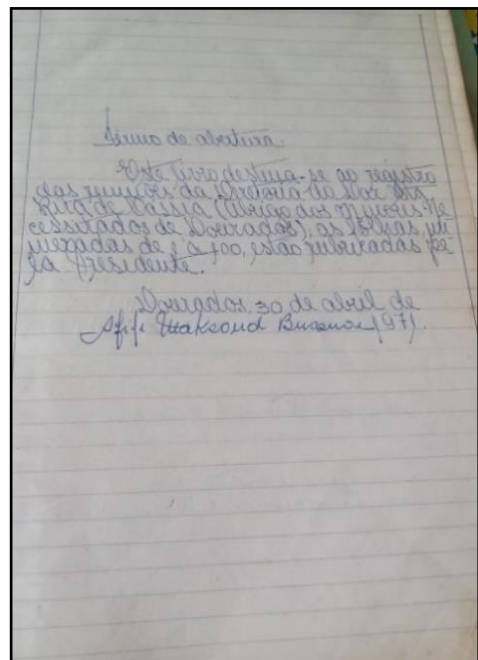 Termo de abertura
Este livro destina-se ao registro
das reuniões da Diretoria do Lar Sta
Rita de Cássia (abrigo dos menores ne
cessitados de Dourados), as folhas, nu
meradas de 1 a 100, estão rubricadas pe
la Presidente.
Dourados, 30 de abril de
Afifi Maksoud 1971.